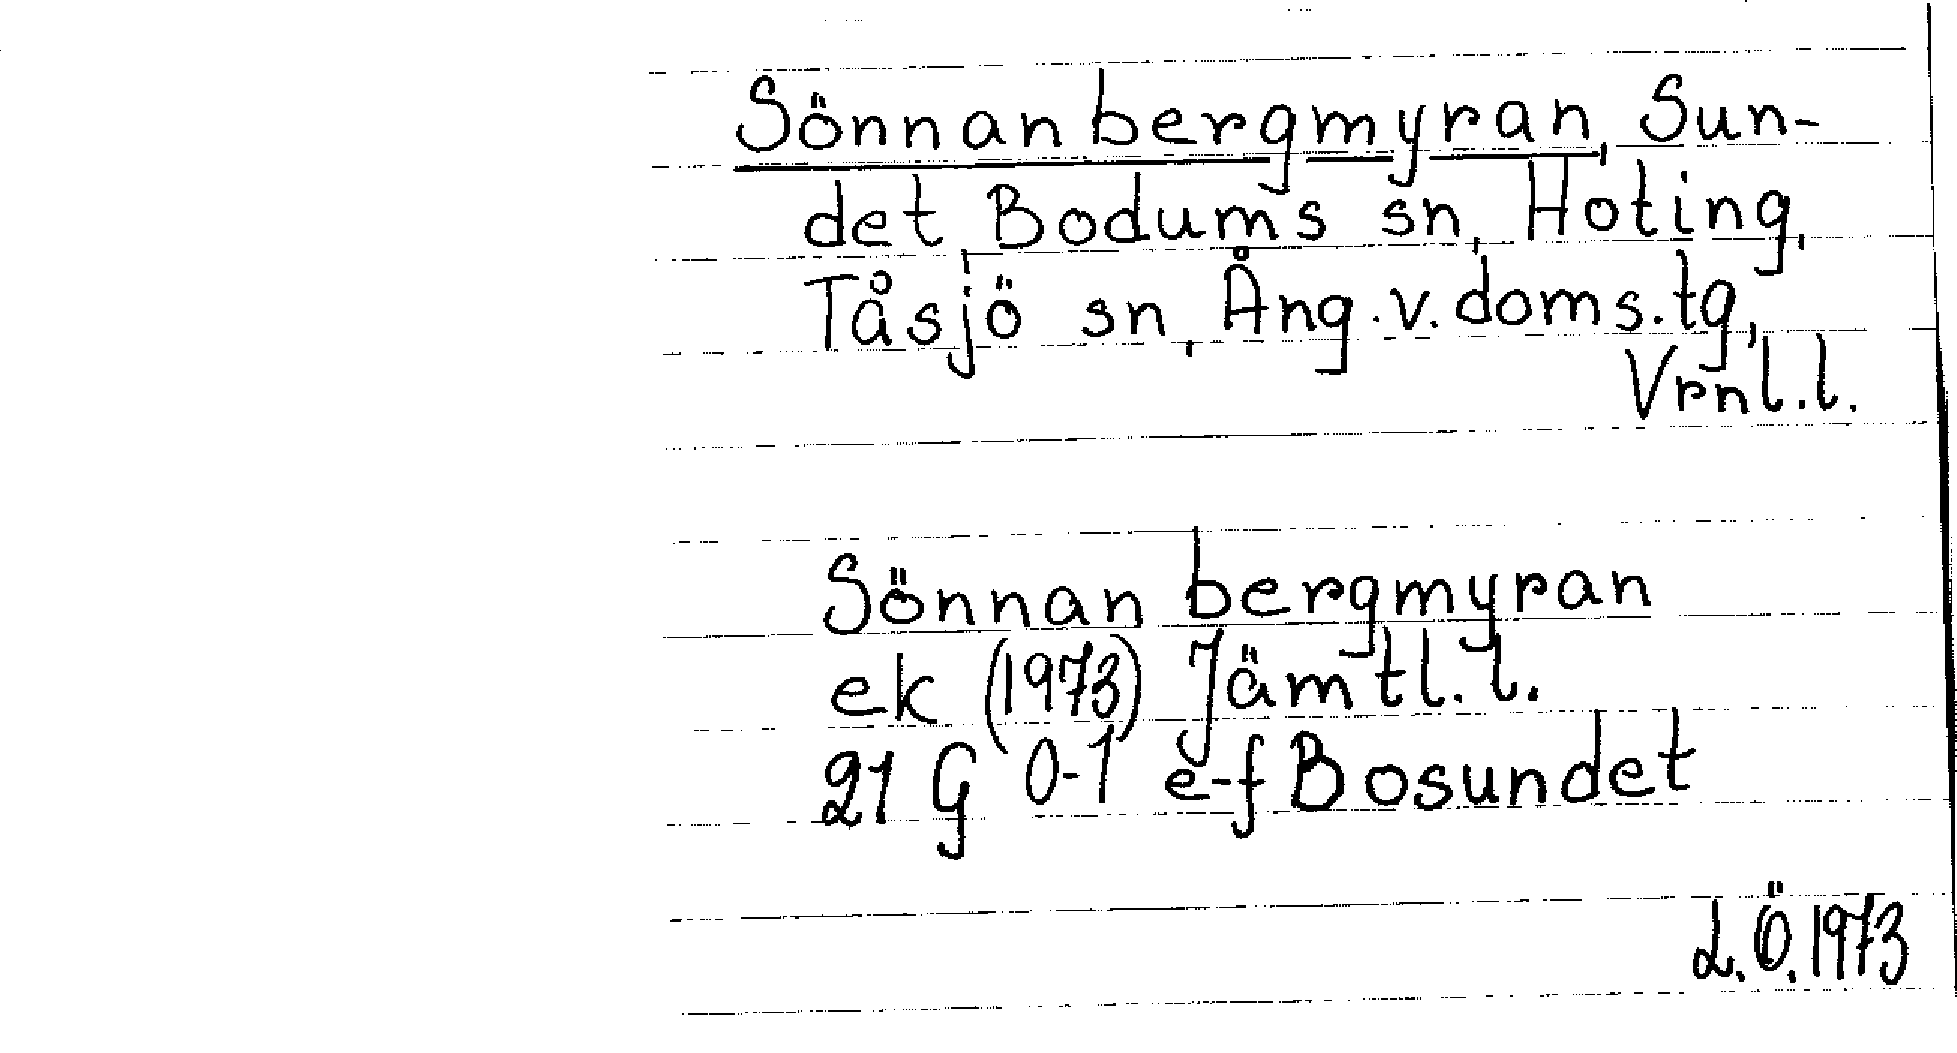 Sönnanbergmyran, Sun-
det, Bodums sn, Hoting,
Tåsjö sn, Ång.v.doms.tg,
Vrnl.l.
Sönnanbergmyran
ek (1973) Jämtl.l.
21 G 0-1 e-f Bosundet
L.Ö.1973